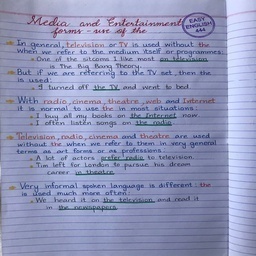 Media and Entertainment
forms - use of the
EASY
ENGLISH
444
In general, television or TV is used without the
when we refer to the medium itself or programmes:
One of the sitcoms I like most on television
is The Big Bang Theory.
But if we are referring to the TV set, then the
is used:
I turned off the TV and went to bed
With radio, cinema, theatre, web and Internet
it is normal to use the in most situations:
I buy all my books on the Internet now
I often listen songs on the radio
Television, radio, cinema and theatre are used
without the when we refer to them in very general
terms as art forms or as professions:
A lot of actors prefer radio to television.
Tim left for London to pursue his dream
career in theatre
Very informal spoken language is different: the
is used much more often:
We heard it on the television and read it
in the newspapers.